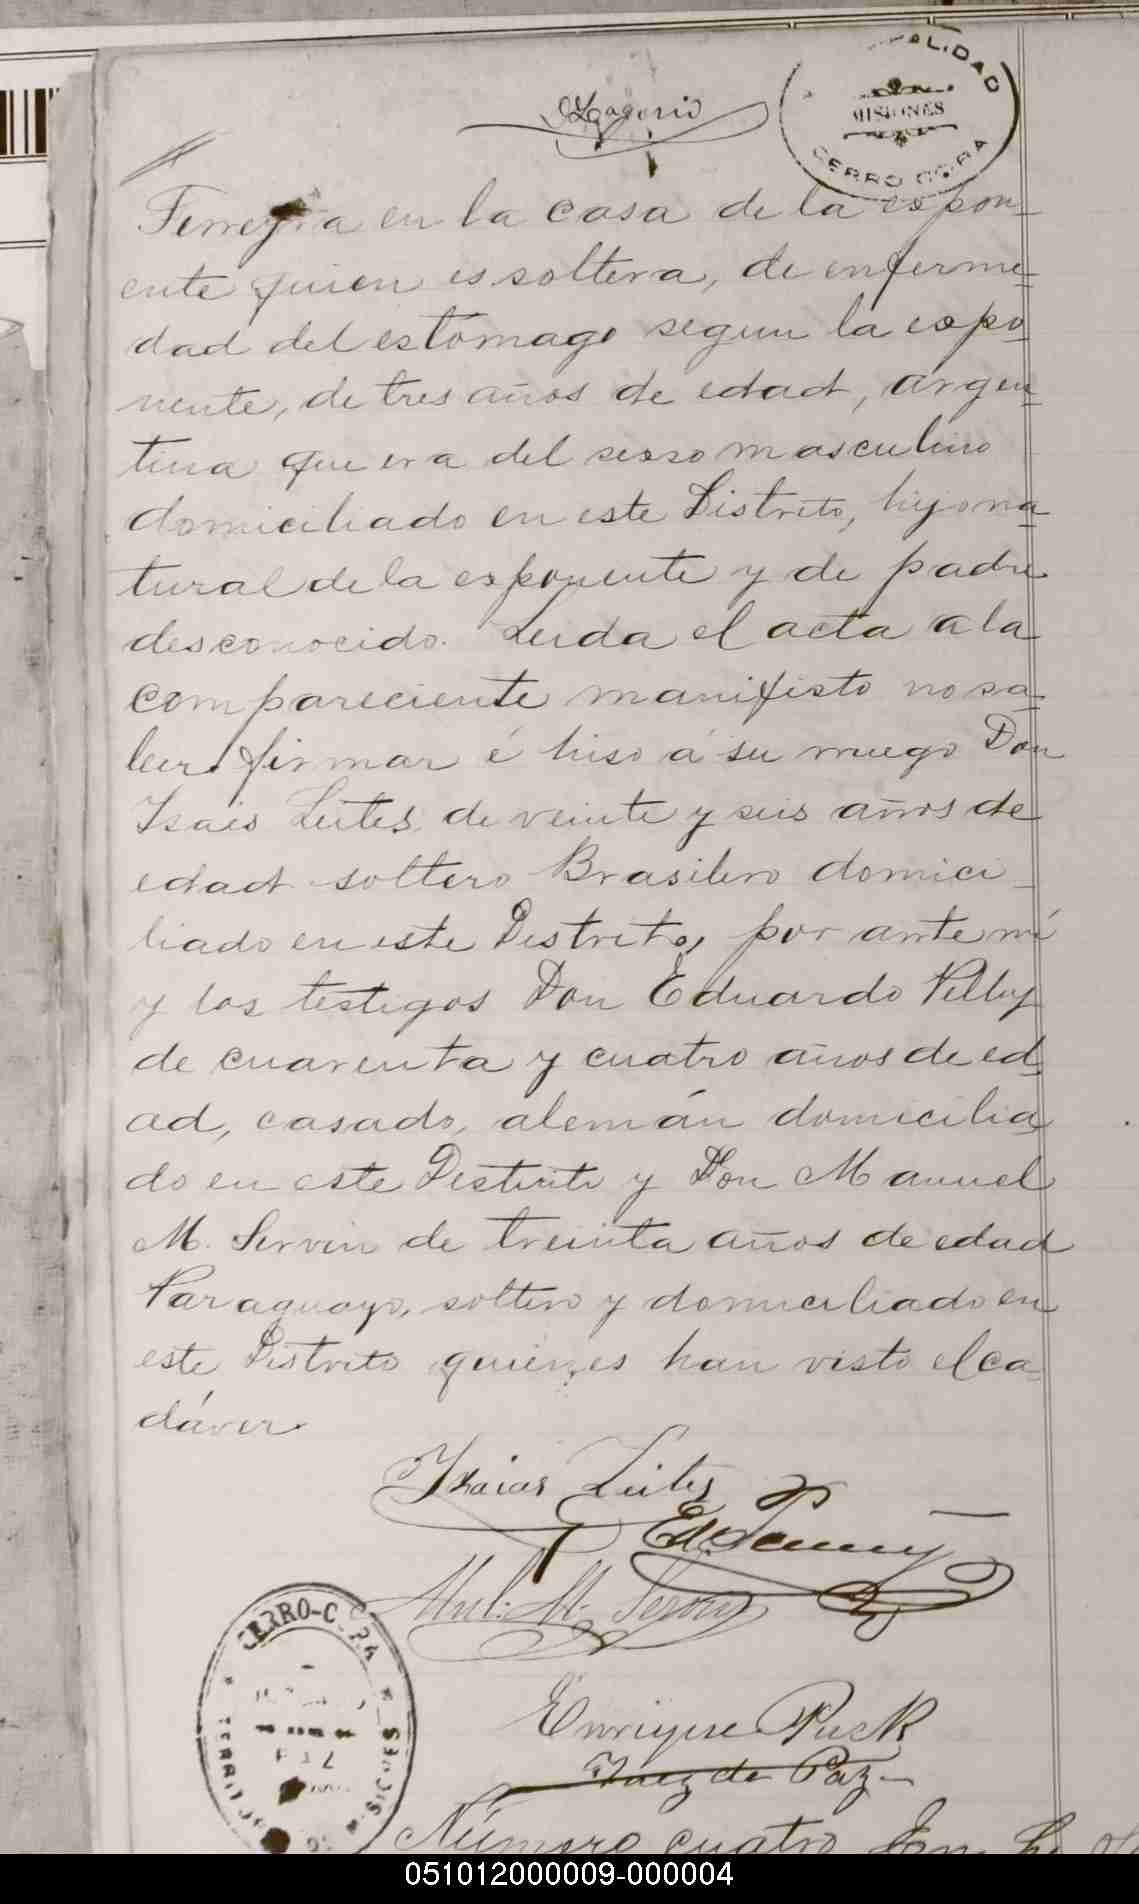 MISIONES
CERRO CORA
Ferreyra en la casa de la expon-
ente quien es soltera, de enferme-
dad del estomago segun la expo-
nente, de tres años de edad, argen-
tina que era del sexso masculino
domiciliado en este Distrito, hijo na-
tural de la exponente y de padre
desconocido. Leida el acta a la
compareciente manifisto no sa-
ber firmar é hiso á su ruego Don
Isais Leites de veinte y seis años de
edad soltero Brasilero domici-
liado en este Distrito, por ante mi
y los testigos Don Eduardo
de cuarenta y cuatro años de ed-
ad, casado, alemán domicilia-
do en este Distrito y Don Manuel
M. Servin de treinta años de edad
Paraguayo, soltero y domiciliado en
este Distrito quienes han visto el ca-
dáver.
Izaias Leites
Mnl. M. Servin
Enrique Puck
Juez de Paz
CERRO-CORA
Número cuatro En
051012000009-000004